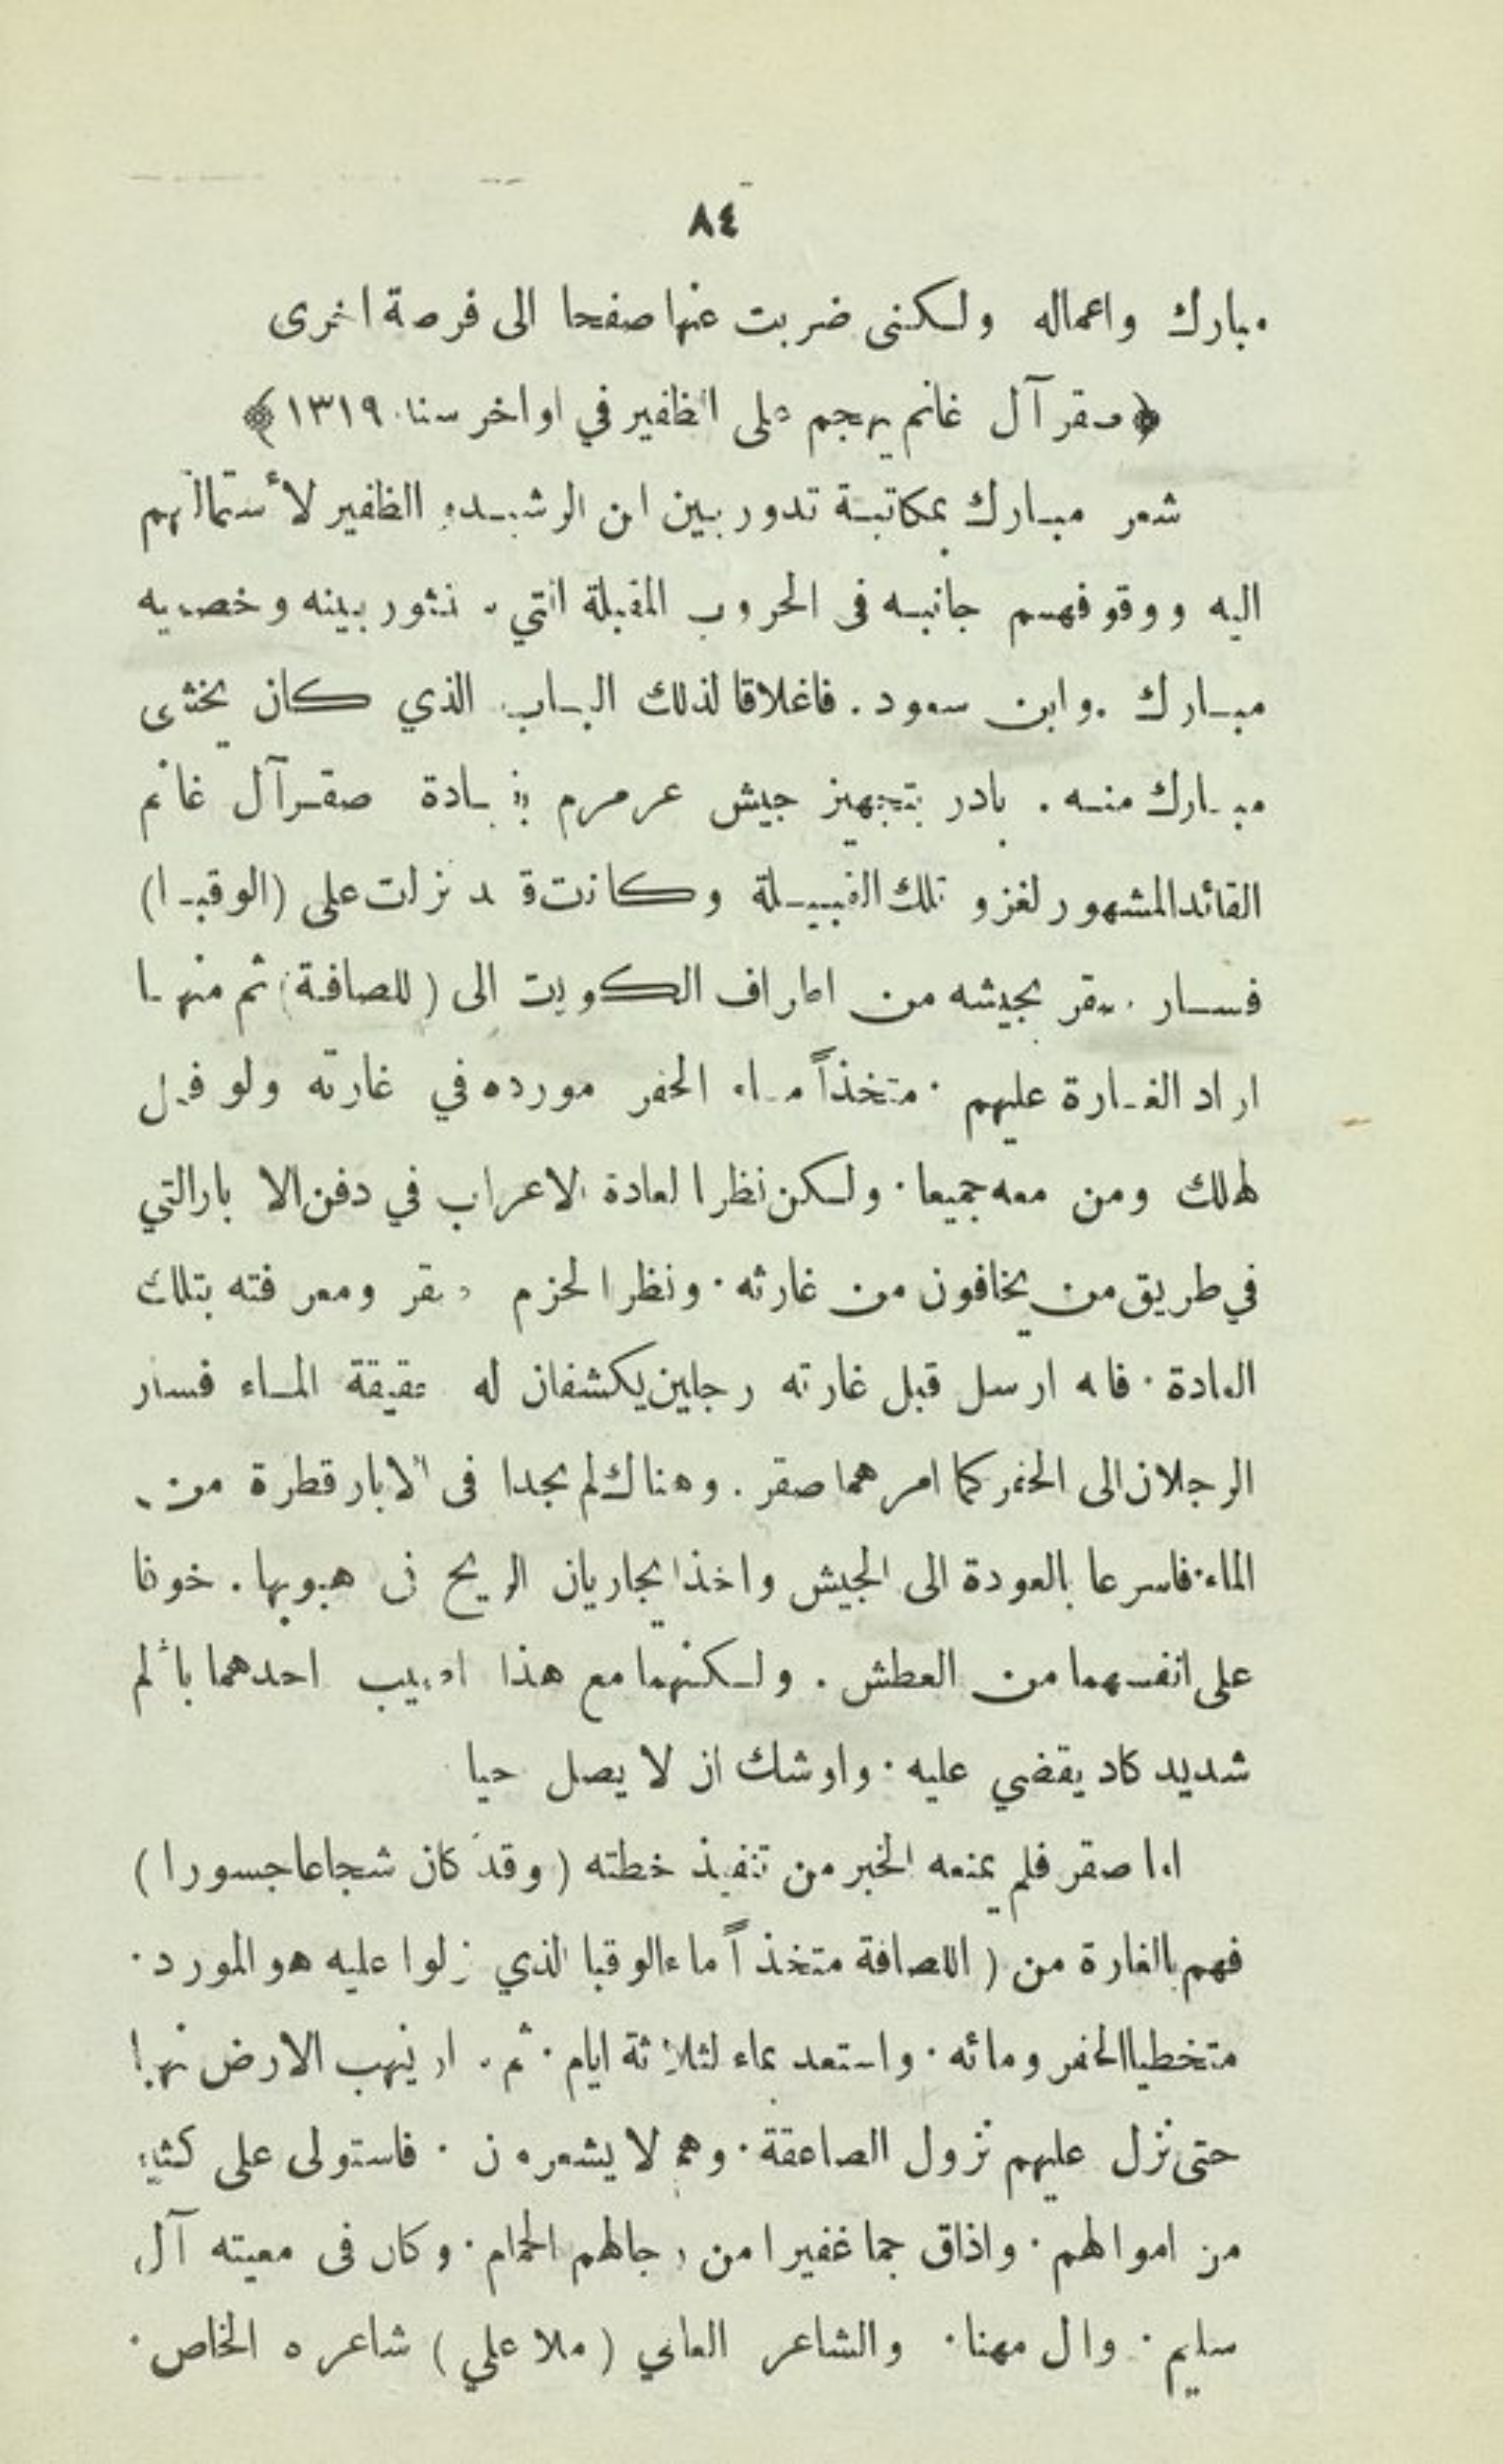 ٨٤
مبارك واعماله ولكنى ضربت عنها صفحا الى فرصة اخرى
﴿صقر آل غانم يهجم على الظفير في اواخر سنة ١٣١٩﴾
شعر مبارك بمكاتبة تدور بين ابن الرشيد والظفير لأستمالتهم
اليه ووقوفهم جانبه فى الحروب المقبلة التي نثور بينه وخصميه
مبارك .وابن سعود. فاغلاقا لذلك الباب الذي كان يخشى
مبارك منه. بادر بتجهيز جيش عرمرم بقيادة صقر آل غانم
القائد المشهور لغزو تلك القبيلة وكانت قد نزلت على (الوقبا)
فسار صقر بجيشه من اطراف الكويت الى (للصافة) ثم منها
اراد الغارة عليهم. متخذاً ماء الحفر مورده في غارته ولو فعل
لهلك ومن معه جميعا. ولكن نظرا لعادة الاعراب في دفن الابار التي
في طريق من يخافون من غارته. ونظرا لحزم صقر ومعرفته بتلك
العادة. فانه ارسل قبل غارته رجلين يكشفان له حقيقة الماء فسار
الرجلان الى الحفر كما امرهما صقر. وهناك لم يجدا فى الابار قطرة من
الماء. فاسرعا بالعودة الى الجيش واخذا يجاريان الريح فى هبوبها. خوفا
على انفسهما من العطش. ولكنهما مع هذا اصيب احدهما بألم
شديد كاد يقضي عليه. واوشك ان لا يصل حيا
اما صقر فلم يمنعه الخبر من تنفيذ خطته (وقد كان شجاعا جسورا)
فهم بالغارة من (اللصافة متخذاً ماء الوقبا الذي نزلوا عليه هو المورد.
متخطيا الحفر ومائه. واستعد بماء لثلاثة ايام. ثم سار ينهب الارض نهبا
حتى نزل عليهم نزول الصاعقة. وهم لا يشعرون. فاستولى على كثير
من اموالهم. واذاق جما غفيرا من رجالهم الحمام. وكان فى معيته آل
سليم. وال مهنا. والشاعر العامي (ملا علي) شاعره الخاص.